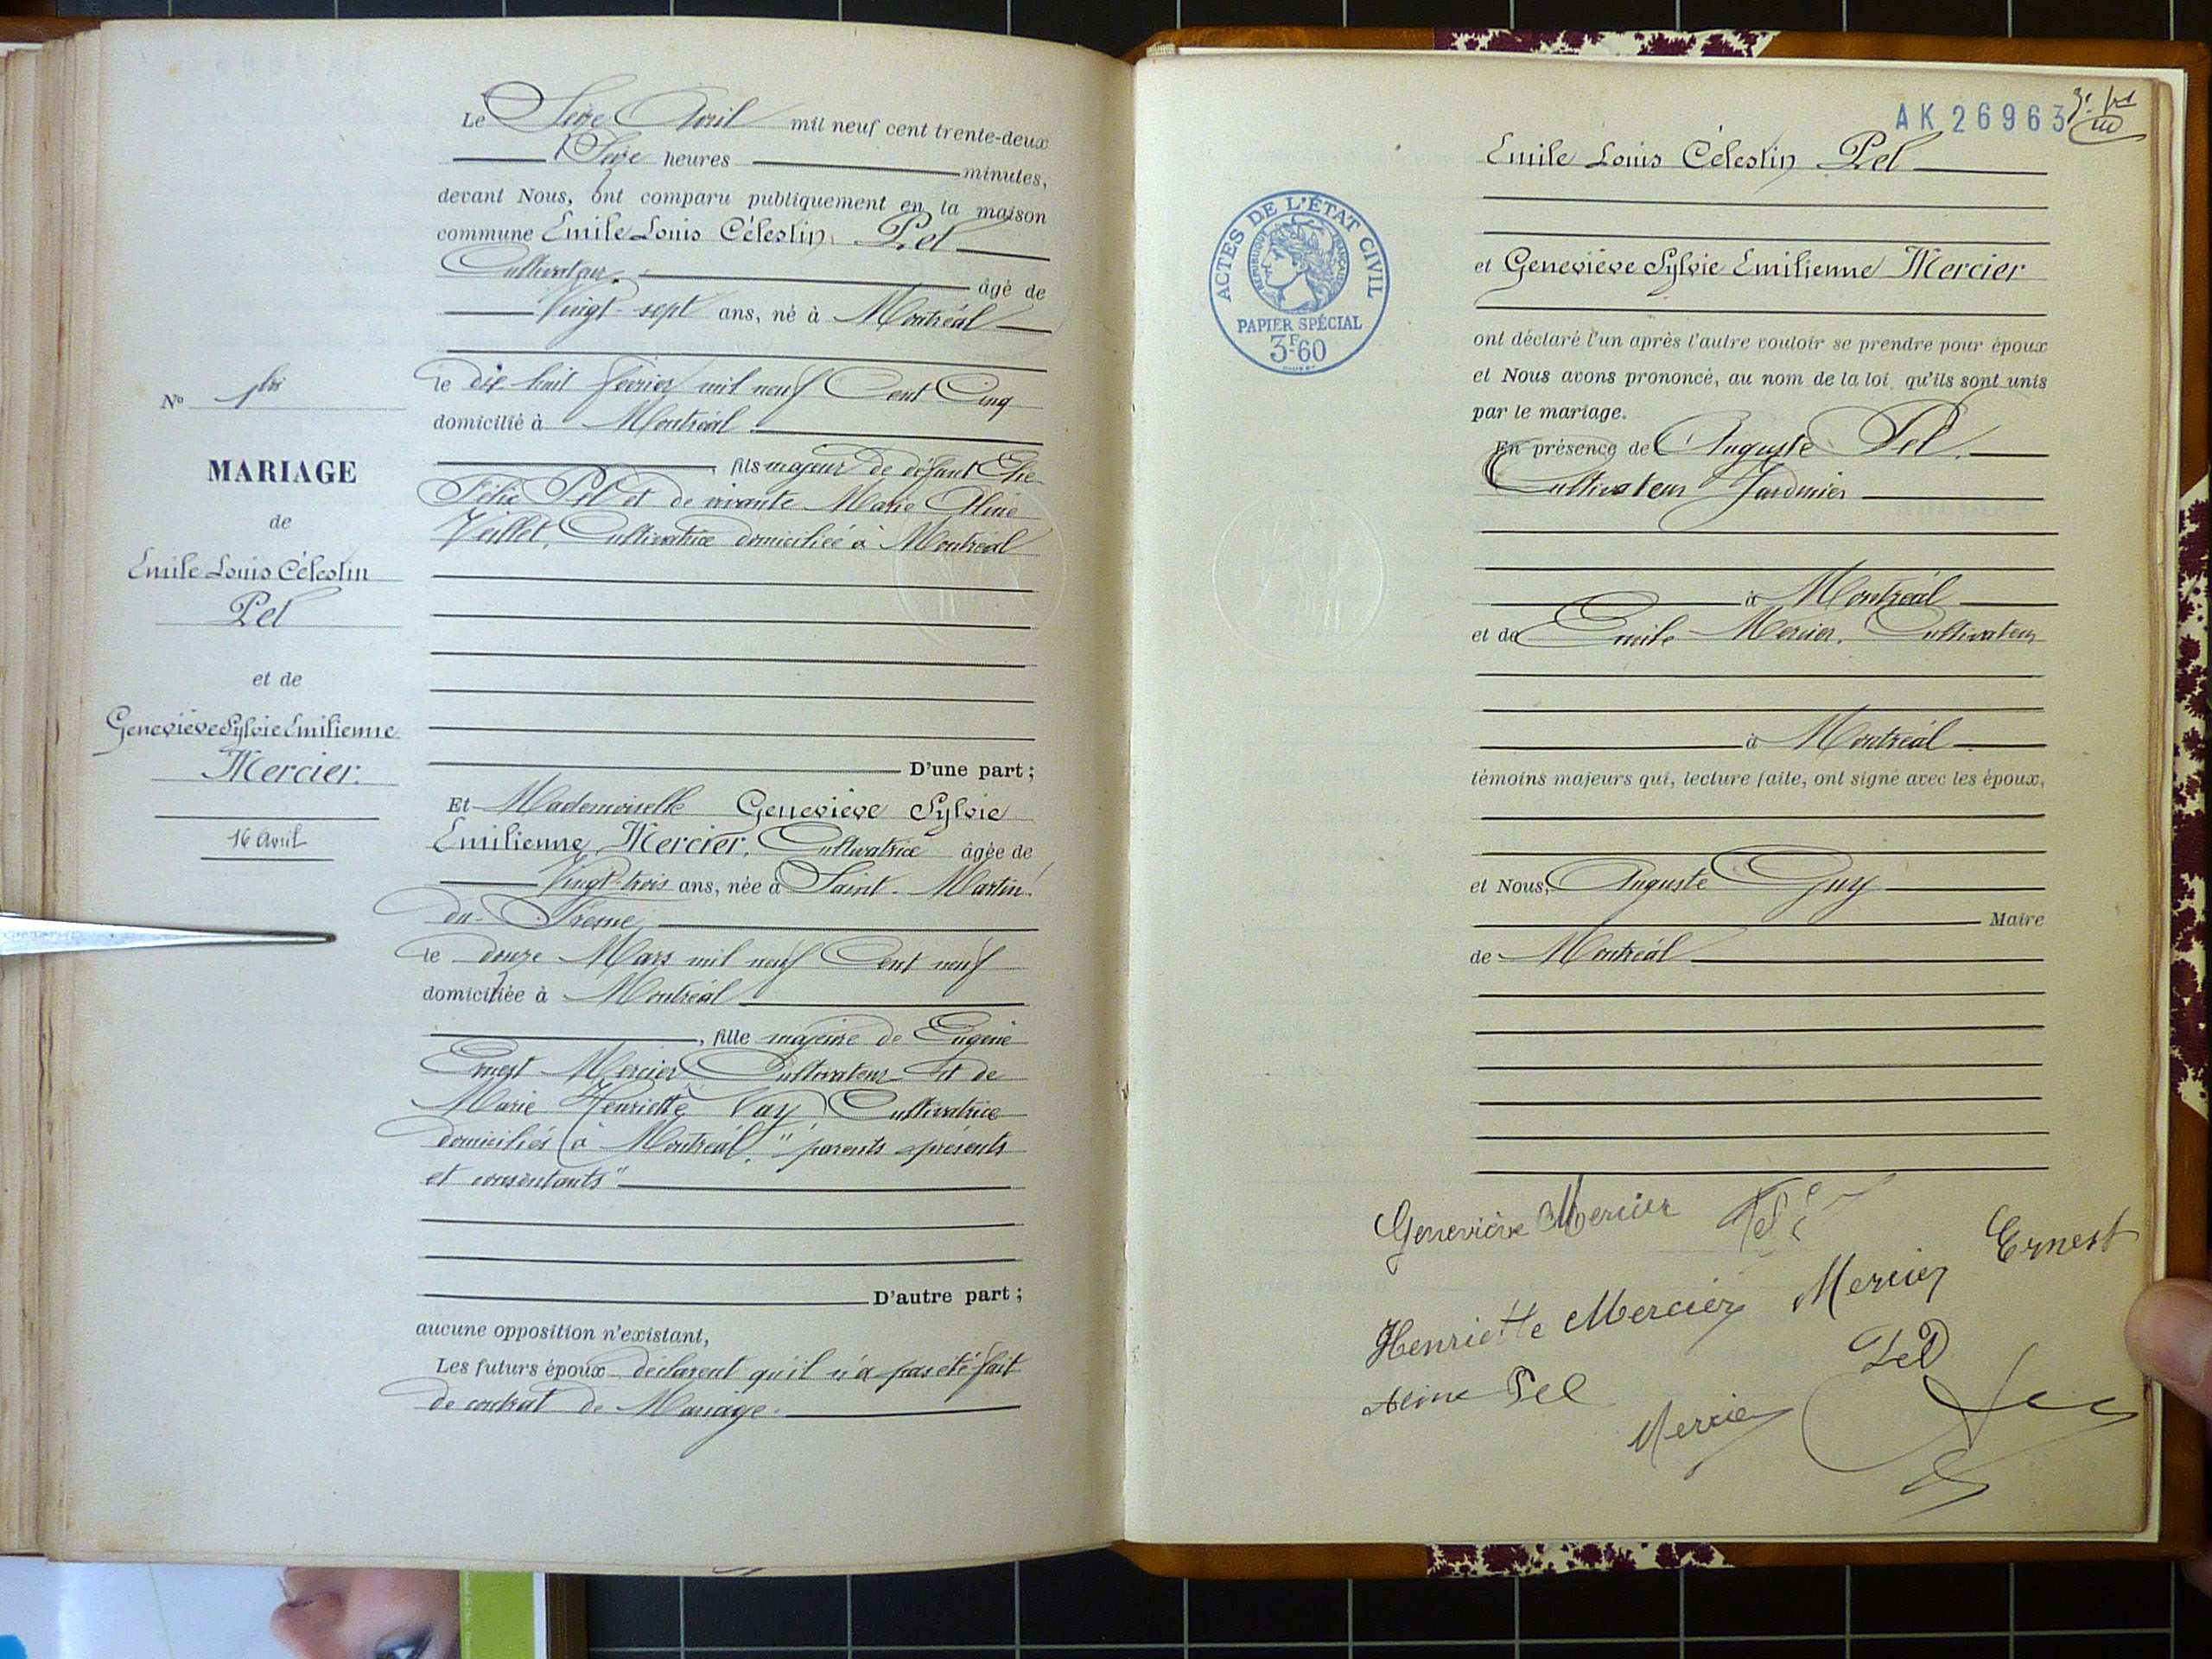 Le Seize Avril mil neuf cent trente-deux
Seize heures minutes,
devant Nous, ont comparu publiquement en la maison
commune Emile Louis Célestin Pel
Cultivateur, âgé de
Vingt-sept ans, né à Montréal
le dix huit février mil neuf Cent Cinq
domicilié à Montréal
, fils majeur de défunt Elie
Félix Pel et de vivante Marie Aline
Veillet, Cultivatrice domiciliée à Montréal
D'une part ;
Et Mademoiselle Geneviève Sylvie
Emilienne Mercier, Cultivatrice âgée de
Vingt-trois ans, née à Saint-Martin
du-Fresne
le douze Mars mil neuf Cent neuf
domiciliée à Montréal
, fille majeure de Eugène
Ernest Mercier Cultivateur et de
Marie Henriette Vay Cultivatrice
domiciliés à Montréal, "parents présents
et consentants"
D'autre part ;
aucune opposition n'existant,
Les futurs époux déclarent qu'il n'a pas été fait
de contrat de Mariage.
No 1
MARIAGE
de
Emile Louis Célestin
Pel
et de
Geneviève Sylvie Emilienne
Mercier.
16 Avril
AK 26963
ACTES DE L'ÉTAT CIVIL
RÉPUBLIQUE FRANÇAISE
PAPIER SPÉCIAL
3F60
Emile Louis Célestin Pel
et Geneviève Sylvie Emilienne Mercier
ont déclaré l'un après l'autre vouloir se prendre pour époux
et Nous avons prononcé, au nom de la loi, qu'ils sont unis
par le mariage.
En présence de Auguste Pel,
Cultivateur Jardinier
à Montréal
et de Emile Mercier, Cultivateur
à Montréal
témoins majeurs qui, lecture faite, ont signé avec les époux,
et Nous, Auguste Guy
Maire
de Montréal
Geneviève Mercier Pel
Henriette Mercier Mercier Ernest
Aline Pel Pel
Mercier